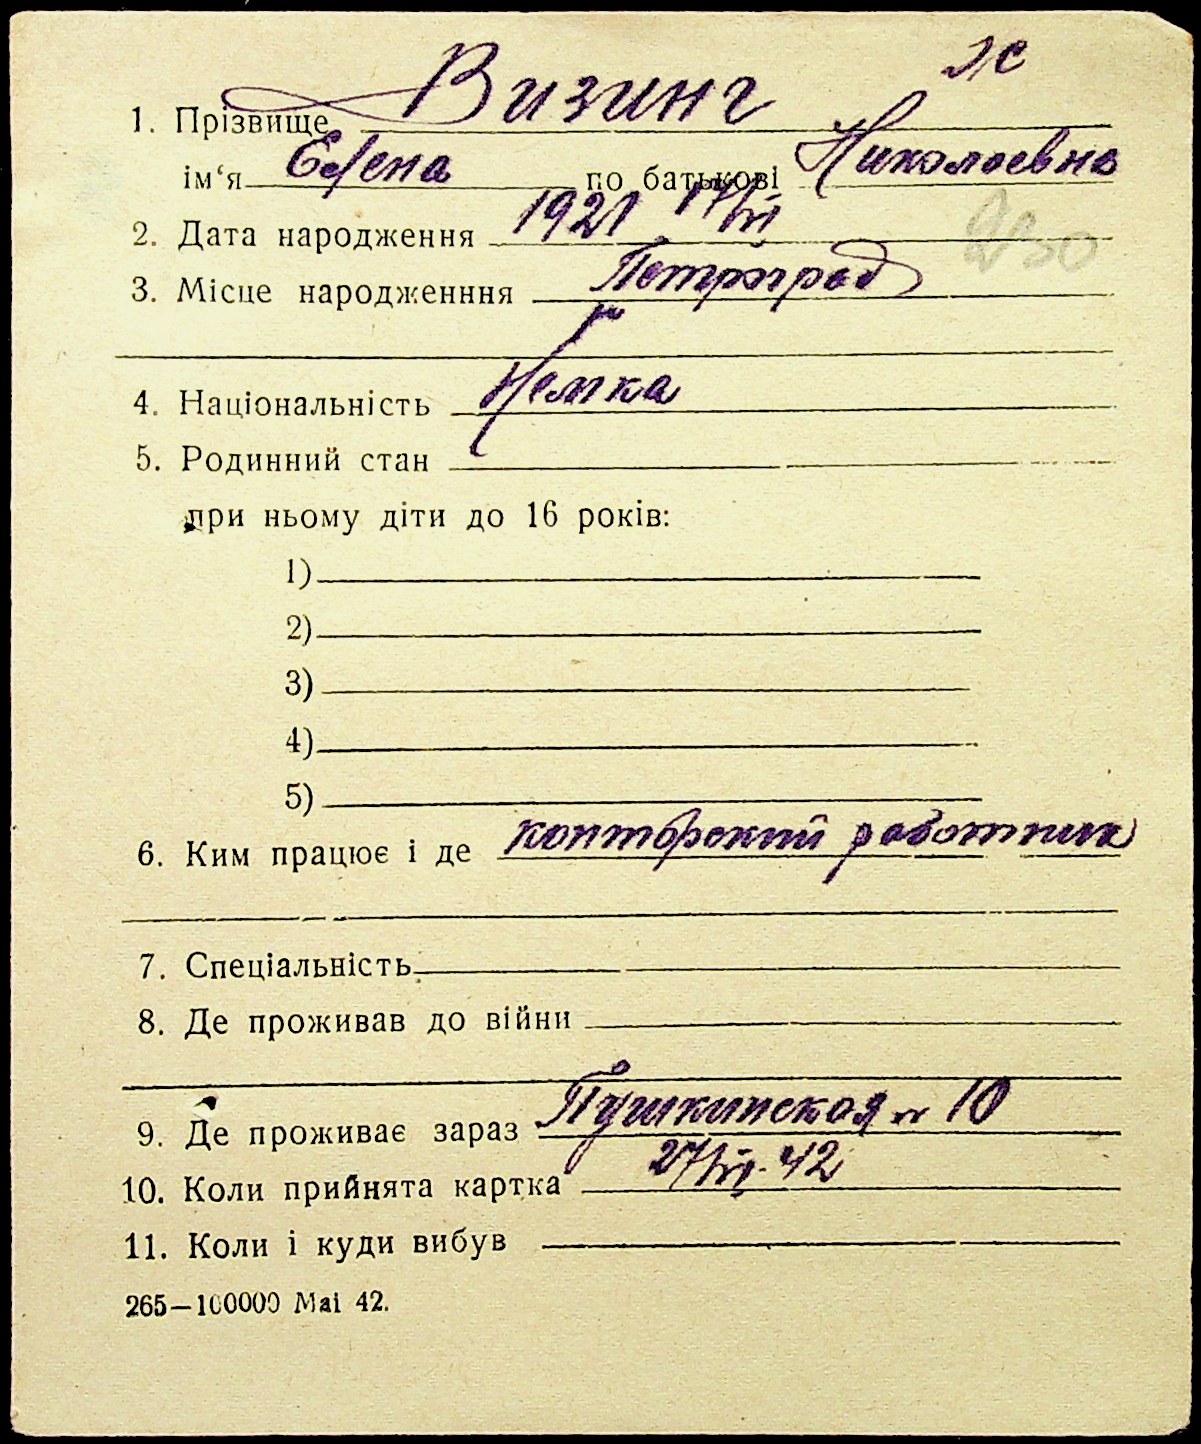 ж
1. Прізвище Визинг
ім‘я Елена по батькові Николаевна
2. Дата народження 1921 17/III
230
3. Місце народженння Петроград
4. Національність Немка
5. Родинний стан
при ньому діти до 16 років:
1)
2)
3)
4)
5)
6. Ким працює і де конторский работник
7. Спеціальність
8. Де проживав до війни
9. Де проживає зараз Пушкинская № 10
10. Коли прийнята картка 27/VII. 42
11. Коли і куди вибув
265—100000 Маі 42.